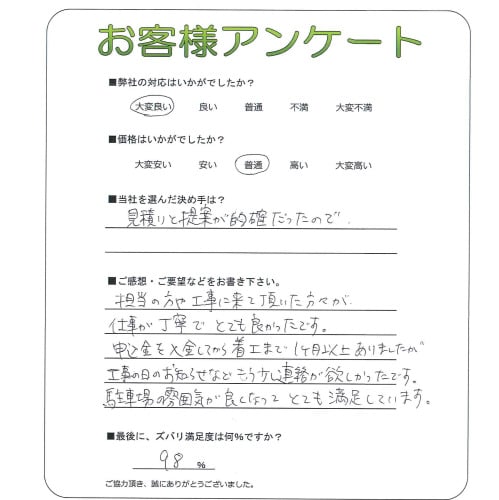 お客様アンケート
■弊社の対応はいかがでしたか？
大変良い 良い 普通 不満 大変不満
■価格はいかがでしたか？
大変安い 安い 普通 高い 大変高い
■当社を選んだ決め手は？
見積りと提案が的確だったので．
■ご感想・ご要望などをお書き下さい。
担当の方や工事に来て頂いた方々が、
仕事が丁寧でとても良かったです。
申込金を入金してから着工まで1ヶ月以上ありましたが
工事の日のお知らせなどもう少し連絡が欲しかったです。
駐車場の雰囲気が良くなってとても満足しています。
■最後に、ズバリ満足度は何%ですか？
98 %
ご協力頂き、誠にありがとうございました。